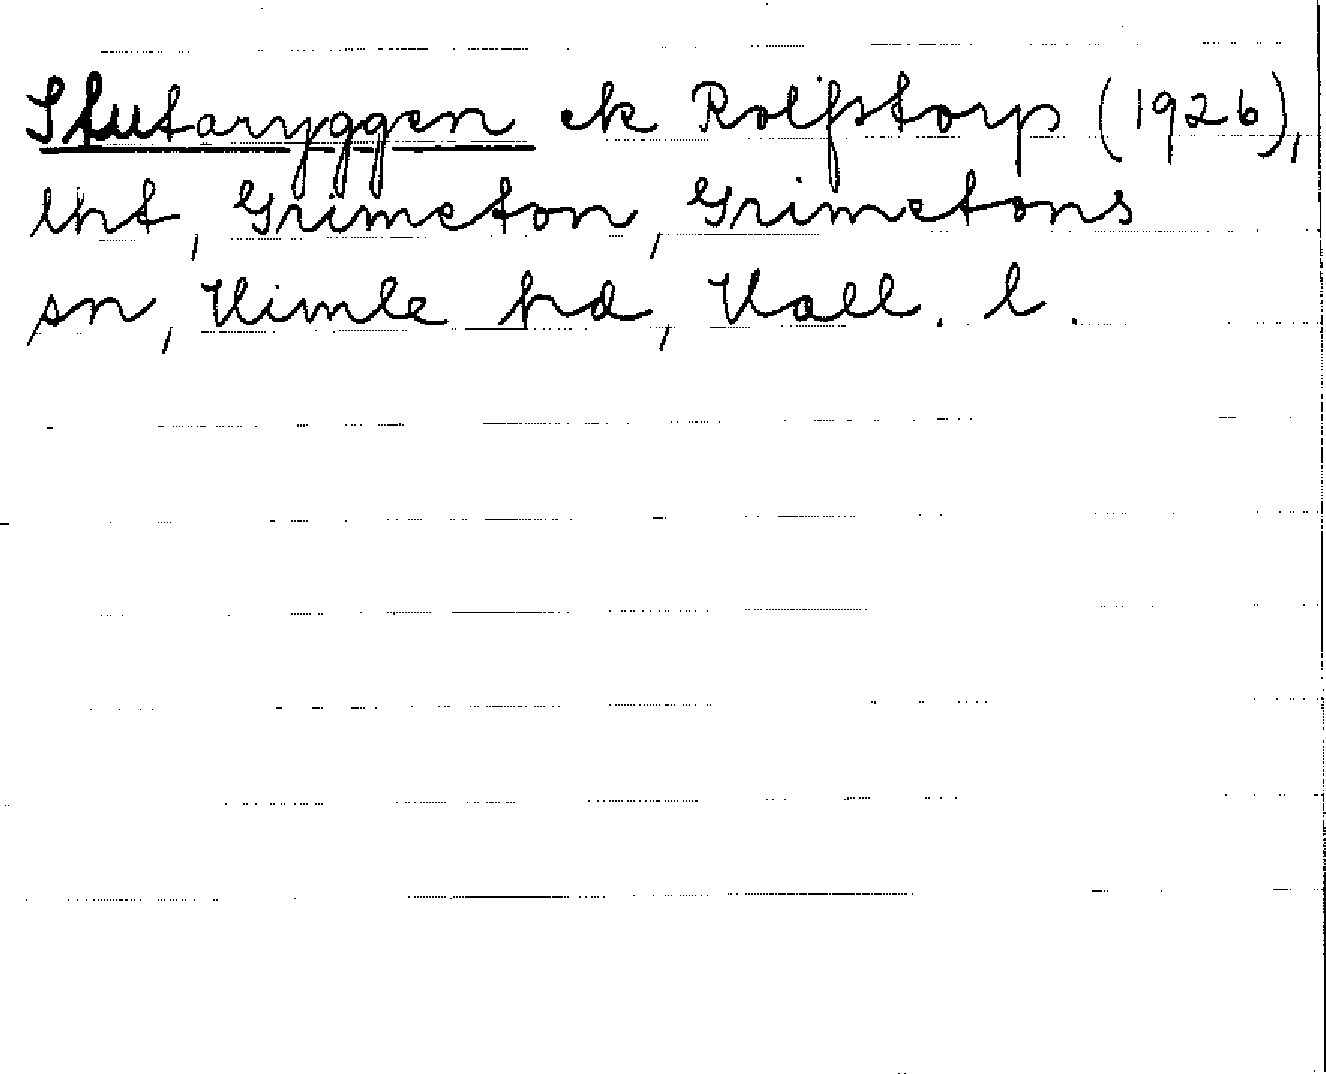 Stutaryggen ek Rolfstorp (1926),
lht, Grimeton, Grimetons
sn, Himle hd, Hall. l.